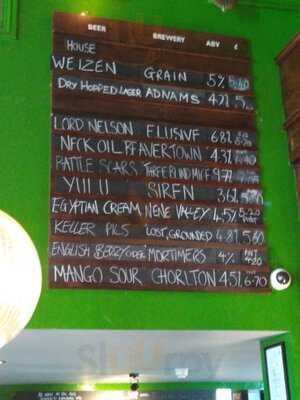 BEER BREWERY ABV £
HOUSE
WEIZEN GRAIN 5%
DRY HOPPED LAGER ADNAMS 4.2%
LORD NELSON ELUSIVE 6.8%
NECK OIL BEAVERTOWN 4.3%
BATTLE SCARS THREE BLIND MICE
YULU SIREN 3.6%
EGYPTIAN CREAM NENE VALLEY 4.5%
KELLER PILS LOST, GROUNDED 4.8% 5.60
ENGLISH BERRY CIDER MORTIMERS 4%
MANGO SOUR CHORLTON 4.5% 6.70